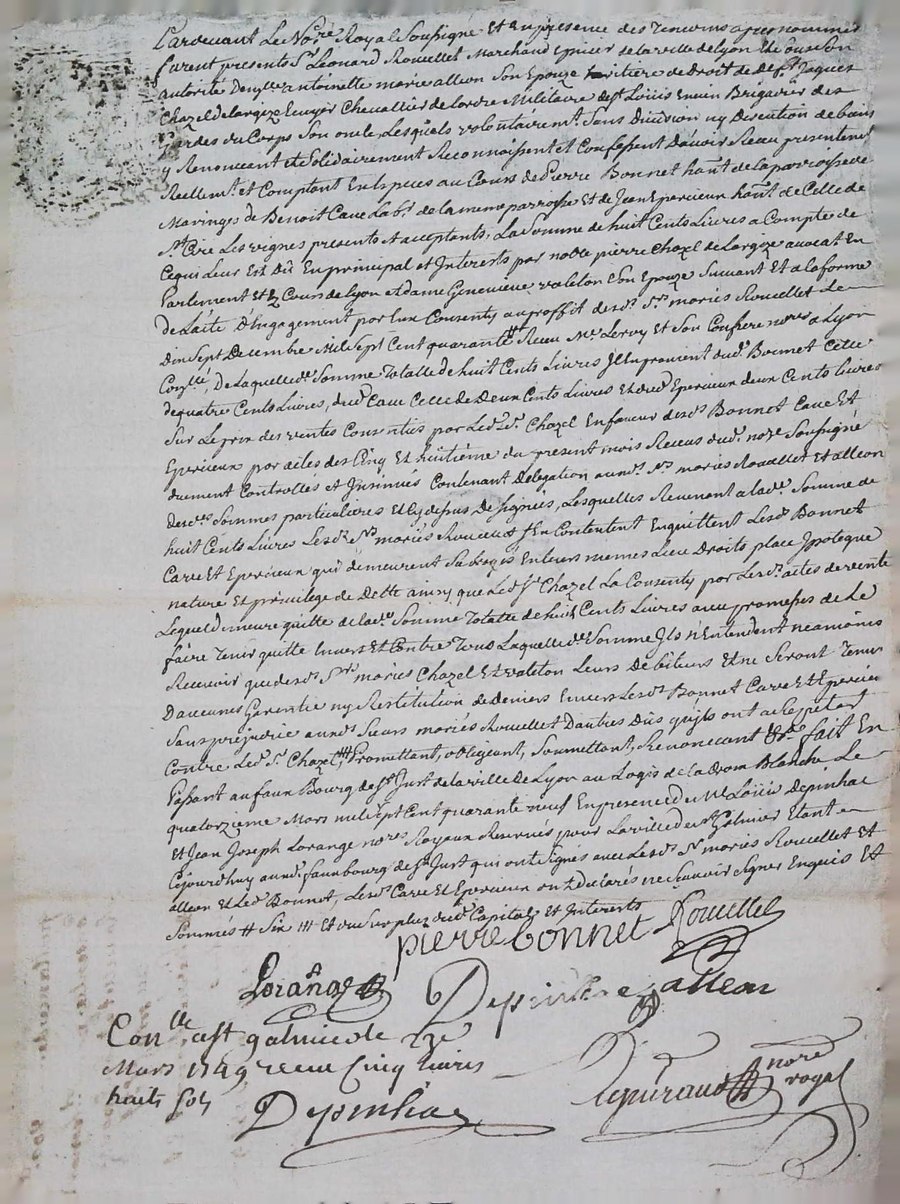 Pardevant Le Not.re Royal Soussigné Et En presence des Temoins apres nommés
furent presents Sr. Léonard Rouvellet Marchand Epicier de la ville de Lyon Et de son
autorité Dem.lle antoinette marie alleon Son Epouze heritiere de Droit de deft. Jaques
Chazel de largize Ecuyer Chevallier de Lordre Militaire de st. Louis Ancien Brigadier des
Gardes du Corps Son oncle, Lesquels volontairemt. Sans Division ny Discution de biens
y Renonceant et Solidairement Reconnoissent et Confessent D'avoir Reçu presentemt
Reellemt. et Comptant En Especes au Cours de Pierre Bonnet habt. de la parroisse de
Maringes de Benoit Cave Labr. de la meme parroisse Et de Jean Epercieux habt. de Celle de
St. Cire Les vignes presents et acceptants, La Somme de huit Cents Livres a Compte de
Ce qui Leur Est Dû En principal et Interests par noble pierre Chazel de Largize avocat En
Parlement Et Es Cours de Lyon et dame Genevieve valeton Son Epouze Suivant Et a la forme
de L'acte D'Engagement par Eux Consenty au proffit desd. Srs. mariés Rouvellet Le
Dix Sept Decembre Mil Sept Cent quarante Reçu Me. Leroy Et Son Confrere nores. a Lyon
Conllé, De Laquelle de. Somme Totalle de huit Cents Livres Il En provient dud. Bonnet Celle
de quatre Cents Livres, dud. Cave Celle de Deux Cents Livres Et dud. Epercieux deux Cents Livres
Sur Le prix des ventes Consenties par Led. Sr. Chazel En faveur desd. Bonnet Cave Et
Epercieux par actes des Cinq Et huitième du present mois Recus dud. nore. Soussigné
duement Controllés et Insinués Contenant Delegation auxd. Srs. mariés Rouvellet Et alleon
desd. Sommes particulieres Et Cy dessus Designées, Lesquelles Revenant a lad. Somme de
huit Cents Livres Lesd. Srs. mariés Rouvellet S'En Contentent Enquittent Lesd. Bonnet
Cave Et Epercieux qui demeurent Subrogés En Leurs memes Lieu Droits place Ypoteque
nature Et privilege de Dette ainsy que Led. Sr. Chazel La Consenty par Lesd. actes de vente
Lequel demeure quitte de lad. Somme Totalle de huit Cents Livres avec promesses de Le
faire Tenir quitte Envers Et Contre Tous Laquelle de. Somme Ils n'Entendent neamoins
Recevoir que desd. Srs. mariés Chazel Et valeton Leurs debiteurs Et ne Seront Tenus
D'aucune Garentie ny Restitution de deniers Envers Lesd. Bonnet Cave Et Epercieux
Sans prejudice auxd. Sieurs mariés Rouvellet D'autres Dûs qu'ils ont a Repeter
Contre Led. Sr. Chazel, Promettant, obligeant, Soumettant, Renonceant &c. fait En
Passant au faux Bourg de St. Just de la ville de Lyon au Logis de La Croix Blanche Le
quatorzieme Mars mil sept Cent quarante neuf En presence de Me Louis Depinhac
Et Jean Joseph Lorange nores Royaux Reservés pour La ville de St. Galmier Etant
Cejourd'huy aud. fauxbourg de St. Just qui ont signés avec Lesd. Srs. mariés Rouvellet Et
alleon Et Led. Bonnet, Lesd. Cave Et Epercieux ont declarés ne Scavoir Signer Enquis Et
Sommés # Six ### Et du Surplus dud. Capital Et Interests
pierre bonnet Rouvellet
Lorange Depinhac alleon
Conlle a st galmier le 22e
Mars 1749 reçu Cinq livres
huit sols
Depinhac
nore royal